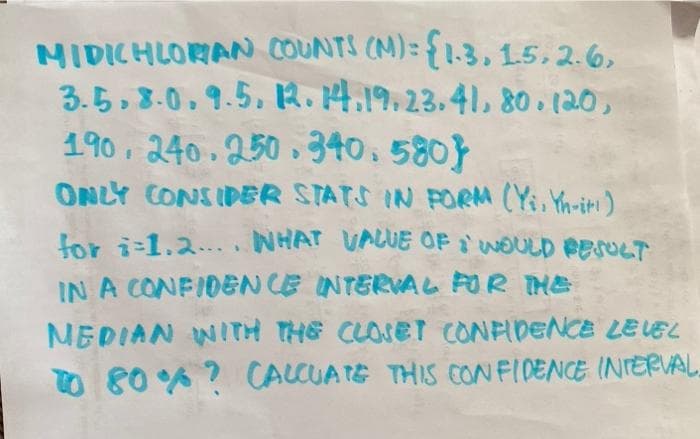 MIDICHLORIAN COUNTS (M)={1.3, 1.5, 2.6,
3.5, 8.0, 9.5, 12, 14, 19, 23, 41, 80, 120,
190, 240, 250, 340, 580}
ONLY CONSIDER STATS IN FORM (Yi, Yn-i+1)
for i=1,2.... WHAT VALUE OF i WOULD RESULT
IN A CONFIDENCE INTERVAL FOR THE
MEDIAN WITH THE CLOSET CONFIDENCE LEVEL
TO 80%? CALCUATE THIS CONFIDENCE INTERVAL.